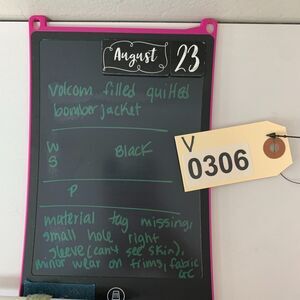 August 23
volcom filled quilted
bomber jacket
W
S
Black
P
material tag missing,
small hole right
sleeve (can't see skin),
minor wear on trims, fabric
GC
V
0306